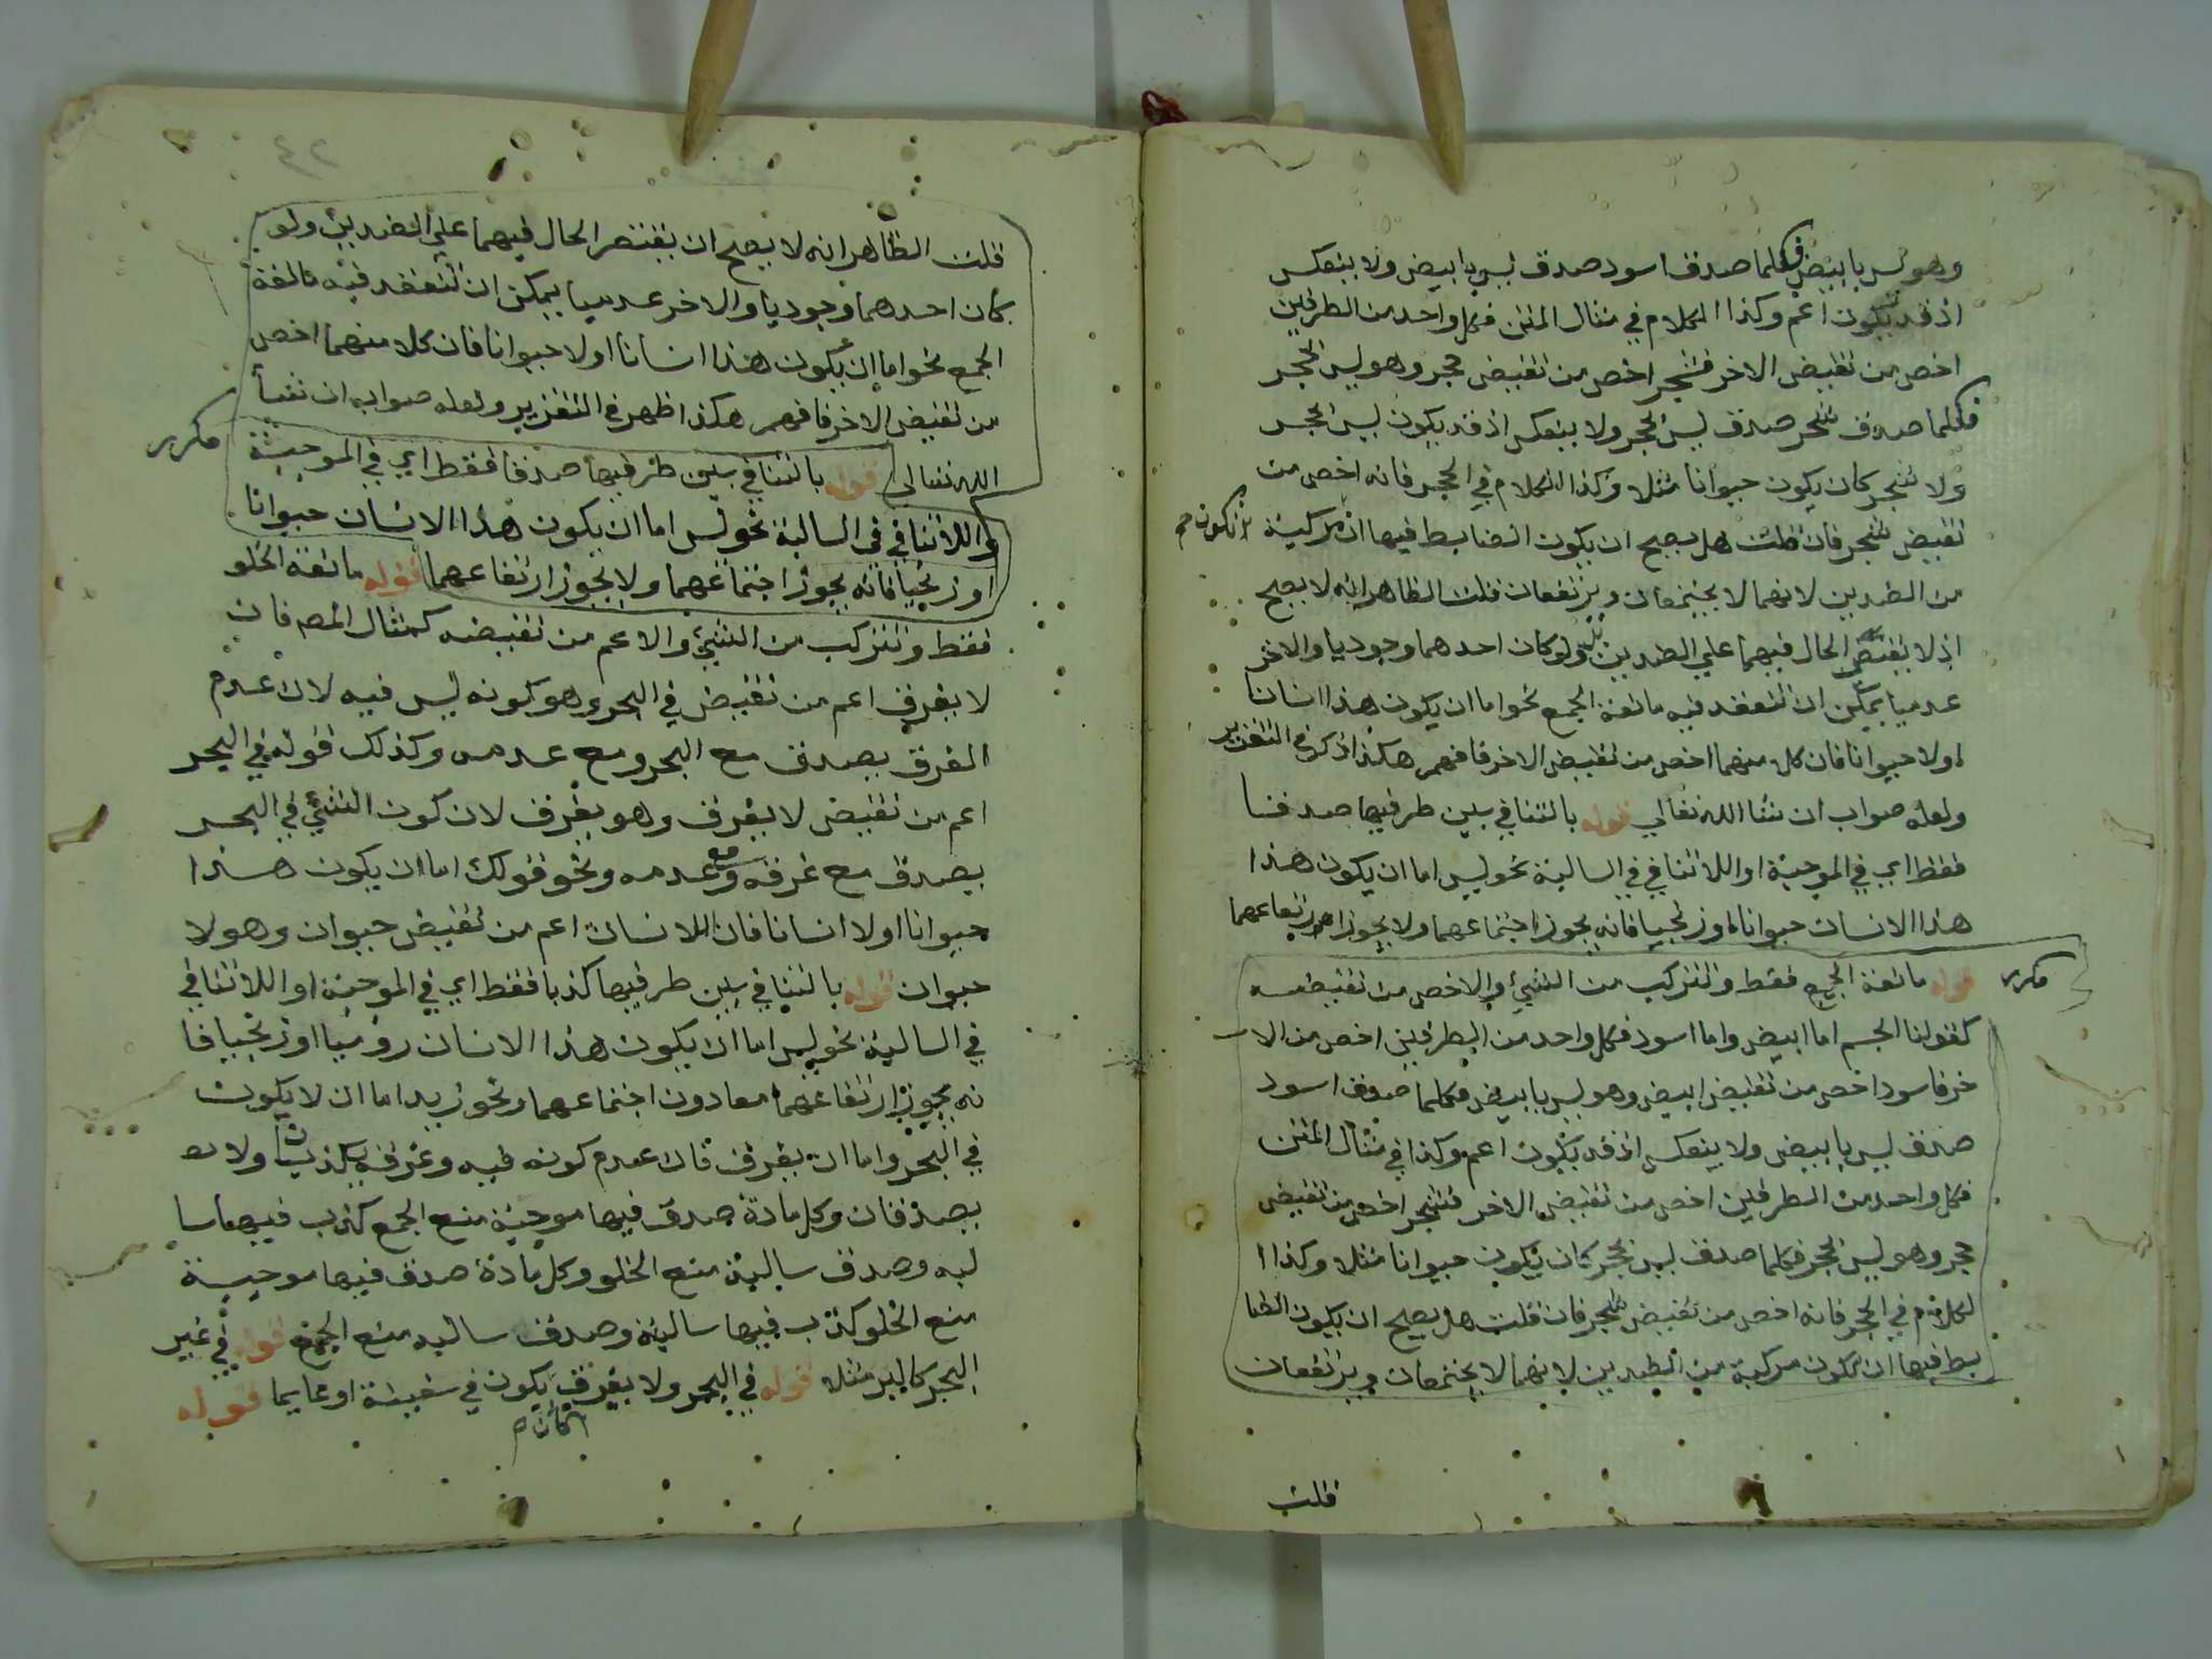 وهو ليس بابيض فكلما صدق اسود صدق ليس بابيض ولا ينعكس
اذ قد يكون اعم وكذا الكلام في مثال المتن فكل واحد من الطرفين
اخص من نقيض الاخر فشجر اخص من نقيض حجر وهو ليس بحجر
فكلما صدق شجر صدق ليس بحجر ولا ينعكس اذ قد يكون ليس بحجر
ولا شجر كان يكون حيوانا مثلا وكذا الكلام في الحجر فانه اخص من
نقيض شجر فان قلت هل يصح ان يكون الضابط فيها ان تكون مركبة
من الضدين لانهما لا يجتمعان ويرتفعان قلت الظاهر انه لا يصح
اذ لا يقتصر الحال فيهما علي الضدين بل ولو كان احدهما وجوديا والاخر
عدميا يمكن ان تنعقد فيه مانعة الجمع نحو اما ان يكون هذا انسانا
اولا حيوانا فان كلا منهما اخص من نقيض الاخر فافهم هكذا ذكر في التقرير
ولعله صواب ان شا الله تعالي قوله بالتنافي بين طرفيها صدقا
فقط اي في الموجبة او اللا تنافي في السالبة نحو ليس اما ان يكون هذا
هذا الانسان حيوانا اوزنجيا فانه يجوز اجتماعهما ولا يجوز ارتفاعهما
مكرر
قوله مانعة الجمع فقط وتتركب من الشيئ والاخص من نقيضه
كقولنا الجسم اما ابيض واما اسود فكل واحد من الطرفين اخص من الا
خر فاسود اخص من نقيض ابيض وهو ليس بابيض فكلما صدق اسود
صدق ليس بابيض ولا ينعكس اذ قد يكون اعم وكذا في مثال المتن
فكل واحد من الطرفين اخص من نقيض الاخر فشجر اخص من نقيض
حجر وهو ليس بحجر فكلما صدق ليس بحجر كان يكون حيوانا مثلا وكذا ا
لكلام في الحجر فانه اخص من نقيض شجر فان قلت هل يصح ان يكون الضا
بط فيها ان تكون مركبة من الضدين لانهما لا يجتمعان ويرتفعان
قلت
٤٢
قلت الظاهر انه لا يصح ان يقتصر الحال فيهما علي الضدين ولو
كان احدهما وجوديا والاخر عدميا يمكن ان تنعقد فيه مانعة
الجمع نحو اما ان يكون هذا انسانا اولا حيوانا فان كلا منهما اخص
من نقيض الاخر فافهم هكذا ظهر في التقرير ولعله صواب ان شا
الله تعالى قوله بالتنافي بين طرفيها صدقا فقط اي في الموجبة
مكرر
واللا تنافي في السالبة نحو ليس اما ان يكون هذا الانسان حيوانا
اوزنجيا فانه يجوز اجتماعهما ولا يجوز ارتفاعهما قوله مانعة الخلو
فقط وتتركب من الشيئ والاعم من نقيضه كمثال المص فان
لا يغرق اعم من نقيض في البحر وهو كونه ليس فيه لان عدم
الغرق يصدق مع البحر ومع عدمه وكذلك قوله في البحر
اعم من نقيض لا يغرق وهو يغرق لان كون الشيئ في البحر
يصدق مع غرقه ومع عدمه ونحو قولك اما ان يكون هذا
حيوانا اولا انسانا فان اللا نسان اعم من نقيض حيوان وهو لا
حيوان قوله بالتنافي بين طرفيها كذبا فقط اي في الموجبة او اللا تنافي
في السالبة نحو ليس اما ان يكون هذا الانسان روميا اوزنجيا فا
نه يجوز ارتفاعهما معا دون اجتماعهما ونحو زيد اما ان لا يكون
في البحر واما ان يغرق فان عدم كونه فيه وغرقه يكذبان ولا
يصدقان وكل مادة صدق فيها موجبة منع الجمع كذب فيها سا
لبه وصدق سالبة منع الخلو وكل مادة صدق فيها موجبة
منع الخلو كذب فيها سالبة وصدق سالبه منع الجمع قوله في غير
البحر كالبر مثلا قوله في البحر ولا يغرق يكون في سفينة او عايما قوله
كأن